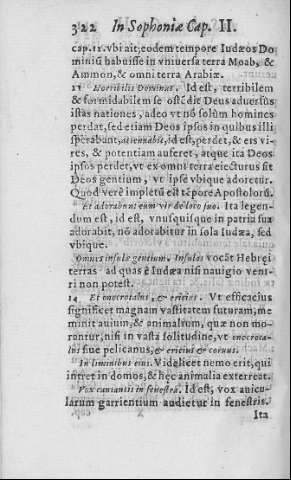 322 In Sophoniæ Cap. II.
cap. 11. vbi ait, eodem tempore Iudæos Do
miniũ habuisse in vniuersa terra Moab, &
Ammon, & omni terra Arabiæ.
11 Horribilis Dominus. Id est, terribilem
& formidabilem se ostẽdit Deus aduersus
istas nationes, adeo vt nõ solùm homines
perdat, sed etiam Deos ipsos in quibus illi
sperabant, attenuabit, id est, perdet, & ers vi
res, & potentiam auferet, atque ita Deos
ipsos perdet, vt ex omni terra eiecturus sit
Deos gentium, vt ipse vbique adoretur.
Quod verè impletũ est tẽpore Apostolorũ.
Et adorabunt eum vir de loco suo. Ita legen
dum est, id est, vnusquisque in patria sua
adorabit, nõ adorabitur in sola Iudæa, sed
vbique.
Omnes insulæ gentium. Insulas vocãt Hebrei
terras ad quas è Iudæa nisi nauigio veni-
ri non potest.
14 Et onocrotalus, & ericius. Vt efficacius
significet magnam vastitatem futuram, me
minit auium, & animalium, quæ non mo-
rantur, nisi in vasta solitudine, vt onocrota-
lus siue pelicanus, & ericius & coruus.
In liminibus eius. Videlicet nemo erit, qui
intret in domos, & hęc animalia exterreat.
Vox cantantis in fenestra. Id est, vox auicu-
larum garrientium audietur in fenestris.
Ita